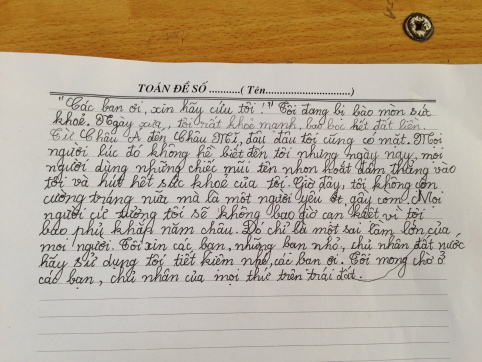 TOÁN ĐỀ SỐ ..........( Tên............................)
"Các bạn ơi, xin hãy cứu tôi!" Tôi đang bị bào mòn sức
khoẻ. Ngày xưa, tôi rất khoẻ mạnh, bao bọc hết đất liền.
Từ Châu Á đến Châu Mĩ, đâu đâu tôi cũng có mặt. Mọi
người lúc đó không hề biết đến tôi nhưng ngày nay, mọi
người dùng những chiếc mũi tên nhọn hoắt đâm thẳng vào
tôi và hút hết sức khoẻ của tôi. Giờ đây, tôi không còn
cường tráng nữa mà là một người yếu ớt, gầy com. Mọi
người cứ tưởng tôi sẽ không bao giờ cạn kiệt vì tôi
bao phủ khắp năm châu. Đó chỉ là một sai lầm lớn của
mọi người. Tôi xin các bạn, những bạn nhỏ, chủ nhân đất nước
hãy sử dụng tôi tiết kiệm nhé, các bạn ơi. Tôi mong chờ ở
các bạn, chủ nhân của mọi thứ trên trái đất.